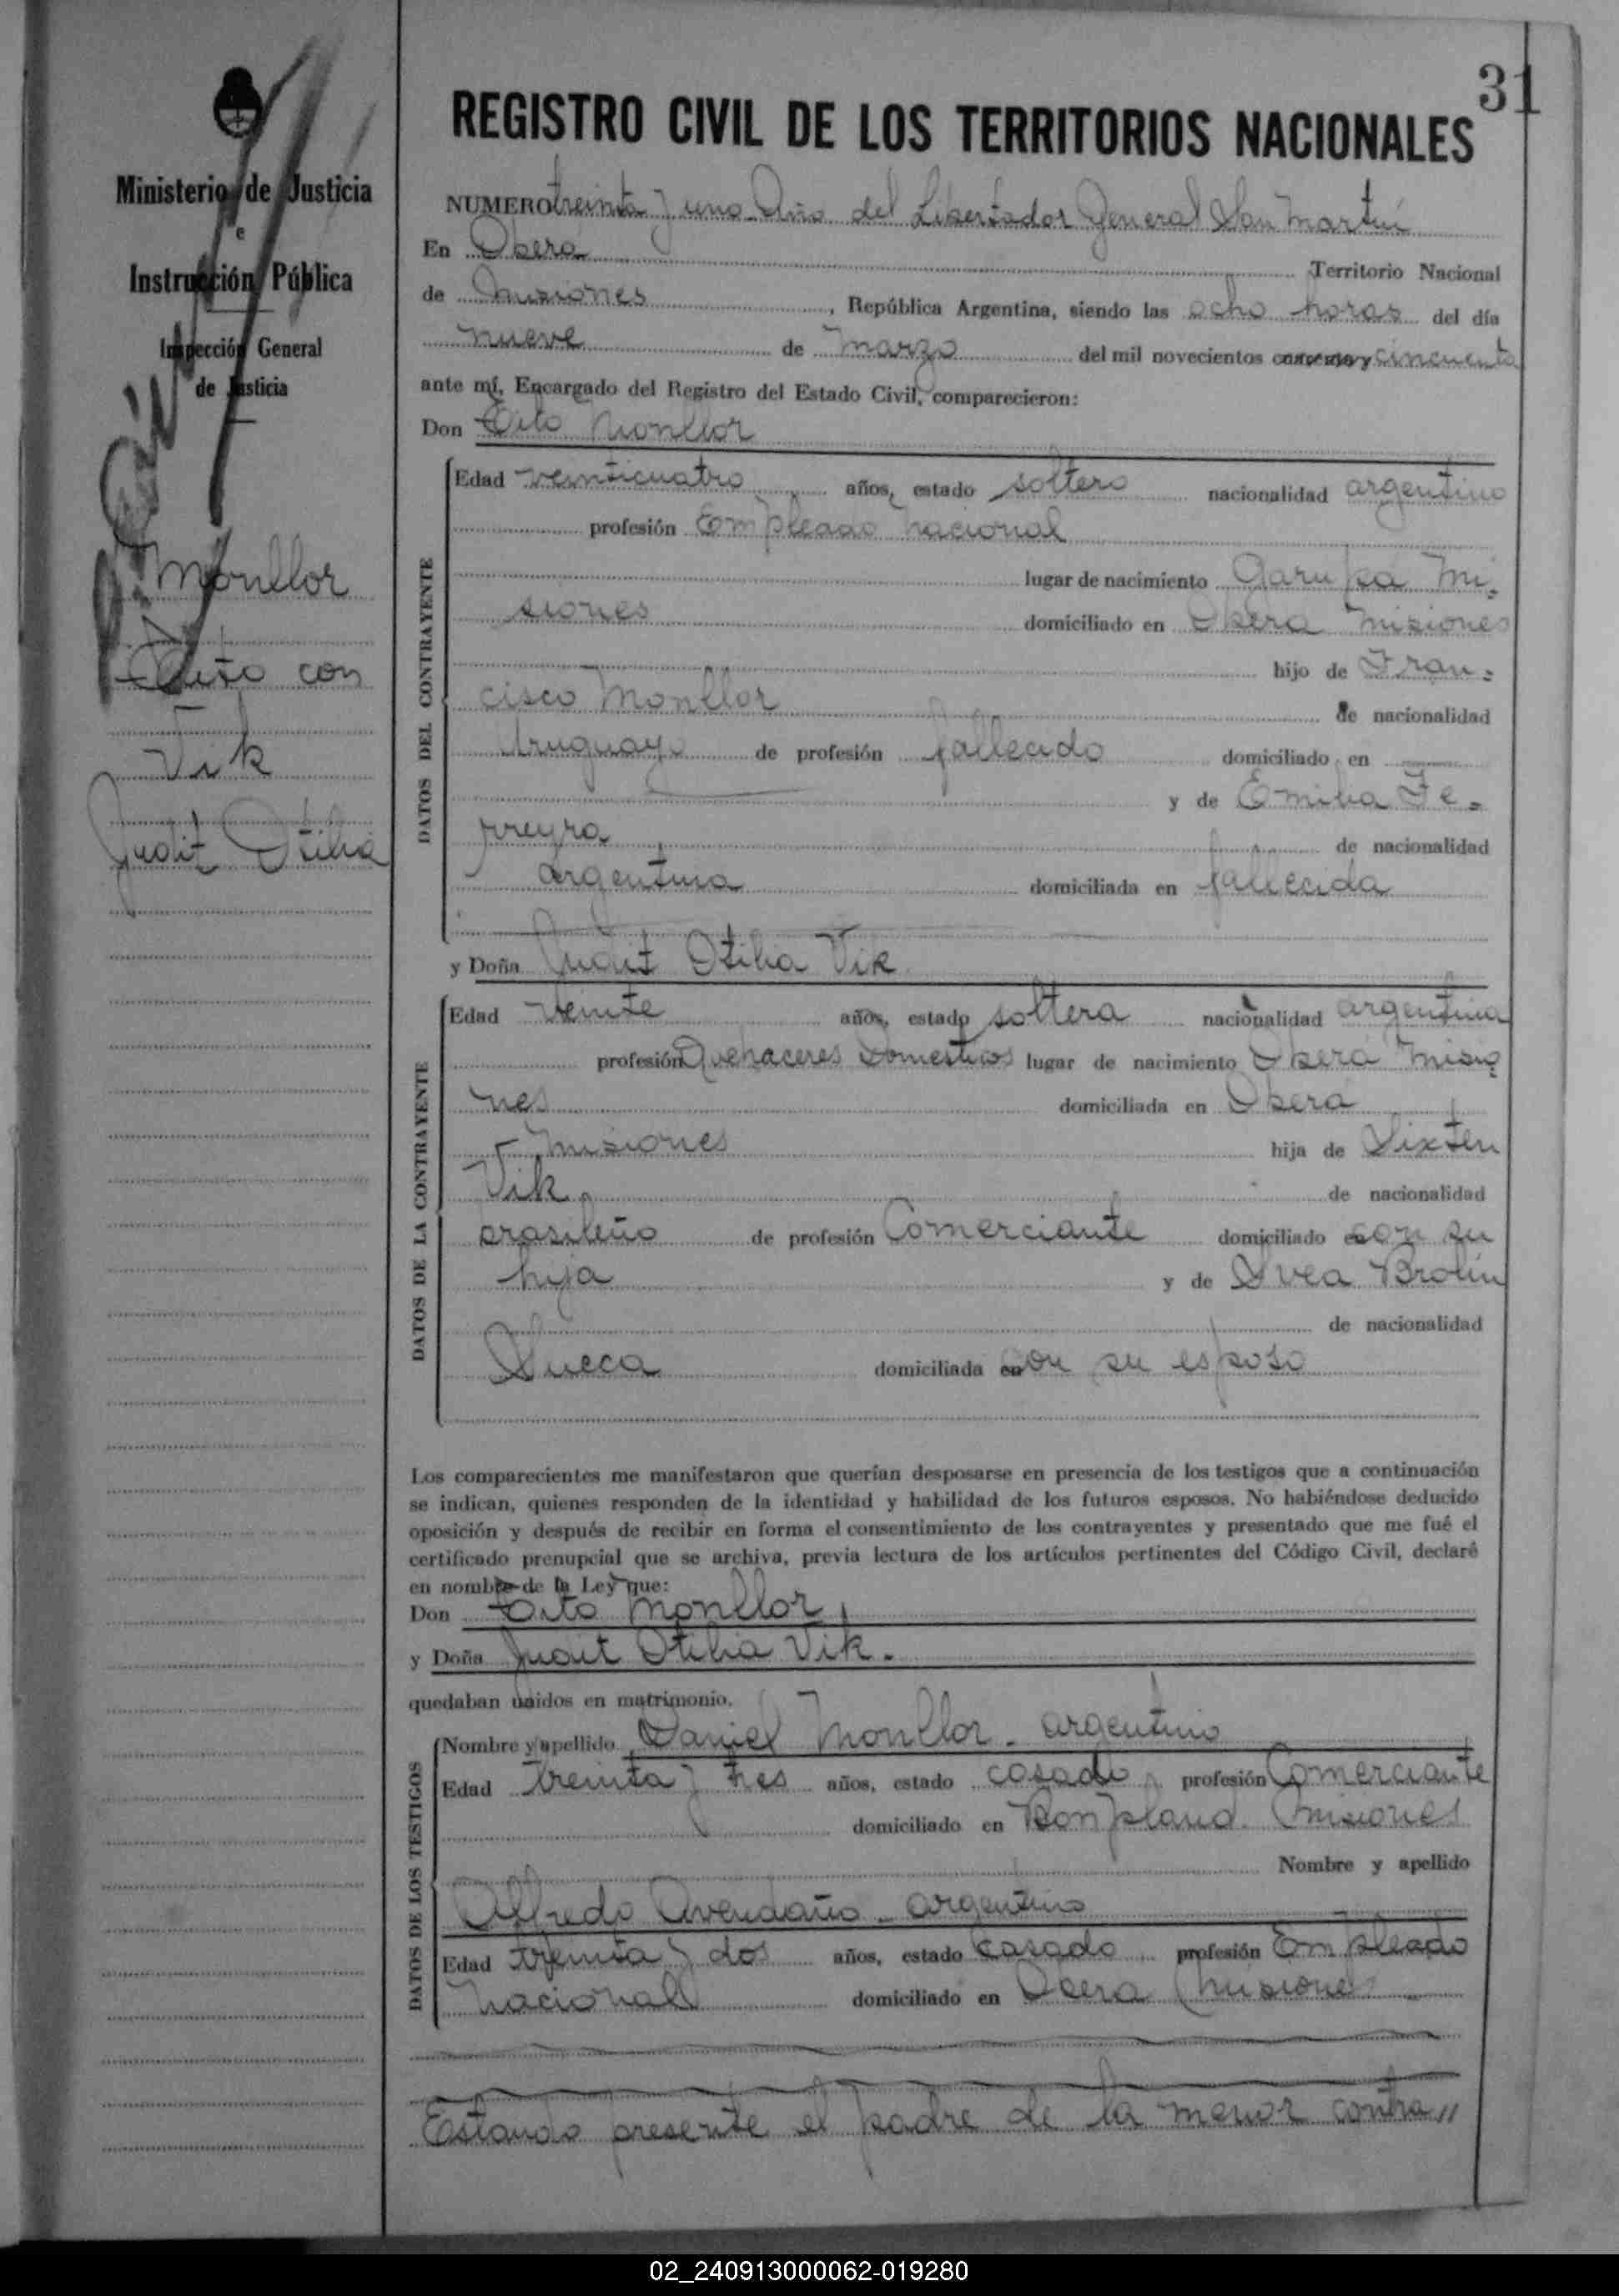 31
REGISTRO CIVIL DE LOS TERRITORIOS NACIONALES
Ministerio de Justicia
e
Instrucción Pública
Inspección General
de Justicia
Monllor
Tito con
Vik
Judit Otilia
NUMERO treinta y uno Año del Libertador General San Martín
En Oberá Territorio Nacional
de Misiones, República Argentina, siendo las ocho horas del día
nueve de Marzo del mil novecientos cincuenta
ante mí, Encargado del Registro del Estado Civil, comparecieron:
Don Tito Monllor
DATOS DEL CONTRAYENTE
Edad veinticuatro años, estado soltero nacionalidad argentino
profesión Empleado Nacional
lugar de nacimiento Garupa Mi-
siones domiciliado en Oberá Misiones
hijo de Fran-
cisco Monllor de nacionalidad
Uruguayo de profesión fallecido domiciliado en
y de Emilia Fe-
rreyra de nacionalidad
argentina domiciliada en fallecida
y Doña Judit Otilia Vik
DATOS DE LA CONTRAYENTE
Edad veinte años, estado soltera nacionalidad argentina
profesión Quehaceres Domesticos lugar de nacimiento Oberá Misio
nes domiciliada en Oberá
Misiones hija de Sixten
Vik de nacionalidad
brasileño de profesión Comerciante domiciliado con su
hija y de Svea Brolin
de nacionalidad
Sueca domiciliada con su esposo
Los comparecientes me manifestaron que querían desposarse en presencia de los testigos que a continuación
se indican, quienes responden de la identidad y habilidad de los futuros esposos. No habiéndose deducido
oposición y después de recibir en forma el consentimiento de los contrayentes y presentado que me fué el
certificado prenupcial que se archiva, previa lectura de los artículos pertinentes del Código Civil, declaré
en nombre de la Ley que:
Don Tito Monllor
y Doña Judit Otilia Vik.
quedaban unidos en matrimonio.
DATOS DE LOS TESTIGOS
Nombre y apellido Daniel Monllor - argentino
Edad treinta y tres años, estado casado profesión Comerciante
domiciliado en Bonpland Misiones
Nombre y apellido
Alfredo Avendaño - argentino
Edad treinta y dos años, estado casado profesión Empleado
Nacional domiciliado en Oberá Misiones
Estando presente el padre de la menor contra,,
02_240913000062-019280